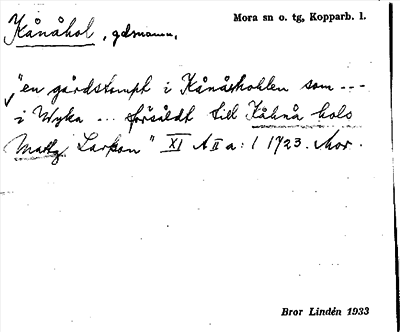 Mora sn o. tg, Kopparb. l.
Kånåhol, gdsnamn.
"en gårdstompt i Kånåhohlen som ---
i Wyka ... försåldt till Kåhnå hols
Mattz Larsson" XI A II a: 1 1723. Mor.
Bror Lindén 1933